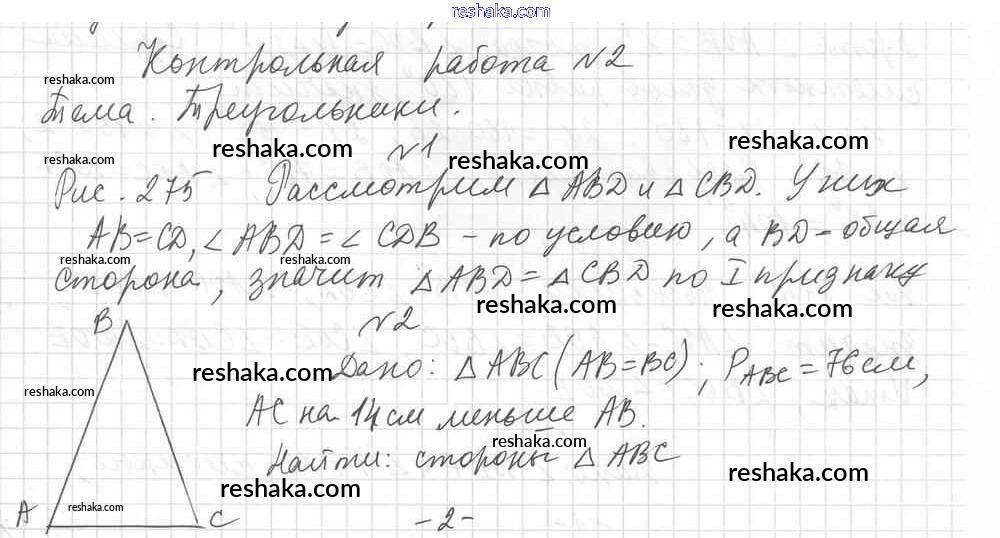 reshaka.com
Контрольная работа №2
reshaka.com
Тема. Треугольники.
reshaka.com
reshaka.com
№1
reshaka.com
Рис. 275 Рассмотрим △ ABD и △ CBD. У них
AB=CD, ∠ ABD = ∠ CDB - по условию, а BD - общая
reshaka.com
reshaka.com
reshaka.com
сторона, значит △ ABD = △ CBD по I признаку
reshaka.com
reshaka.com
B
№2
Дано: △ ABC (AB=BC); P ABC = 76 см,
reshaka.com
reshaka.com
AC на 14 см меньше AB.
reshaka.com
Найти: стороны △ ABC
reshaka.com
reshaka.com
reshaka.com
A
C
-2-